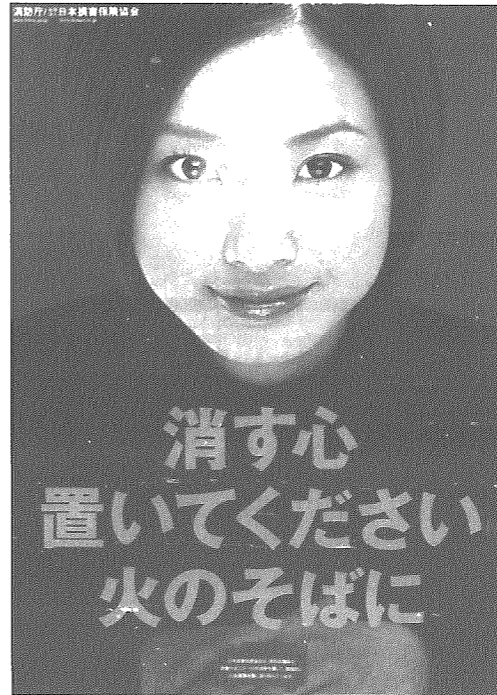 消防庁/日本損害保険協会
消す心
置いてください
火のそばに